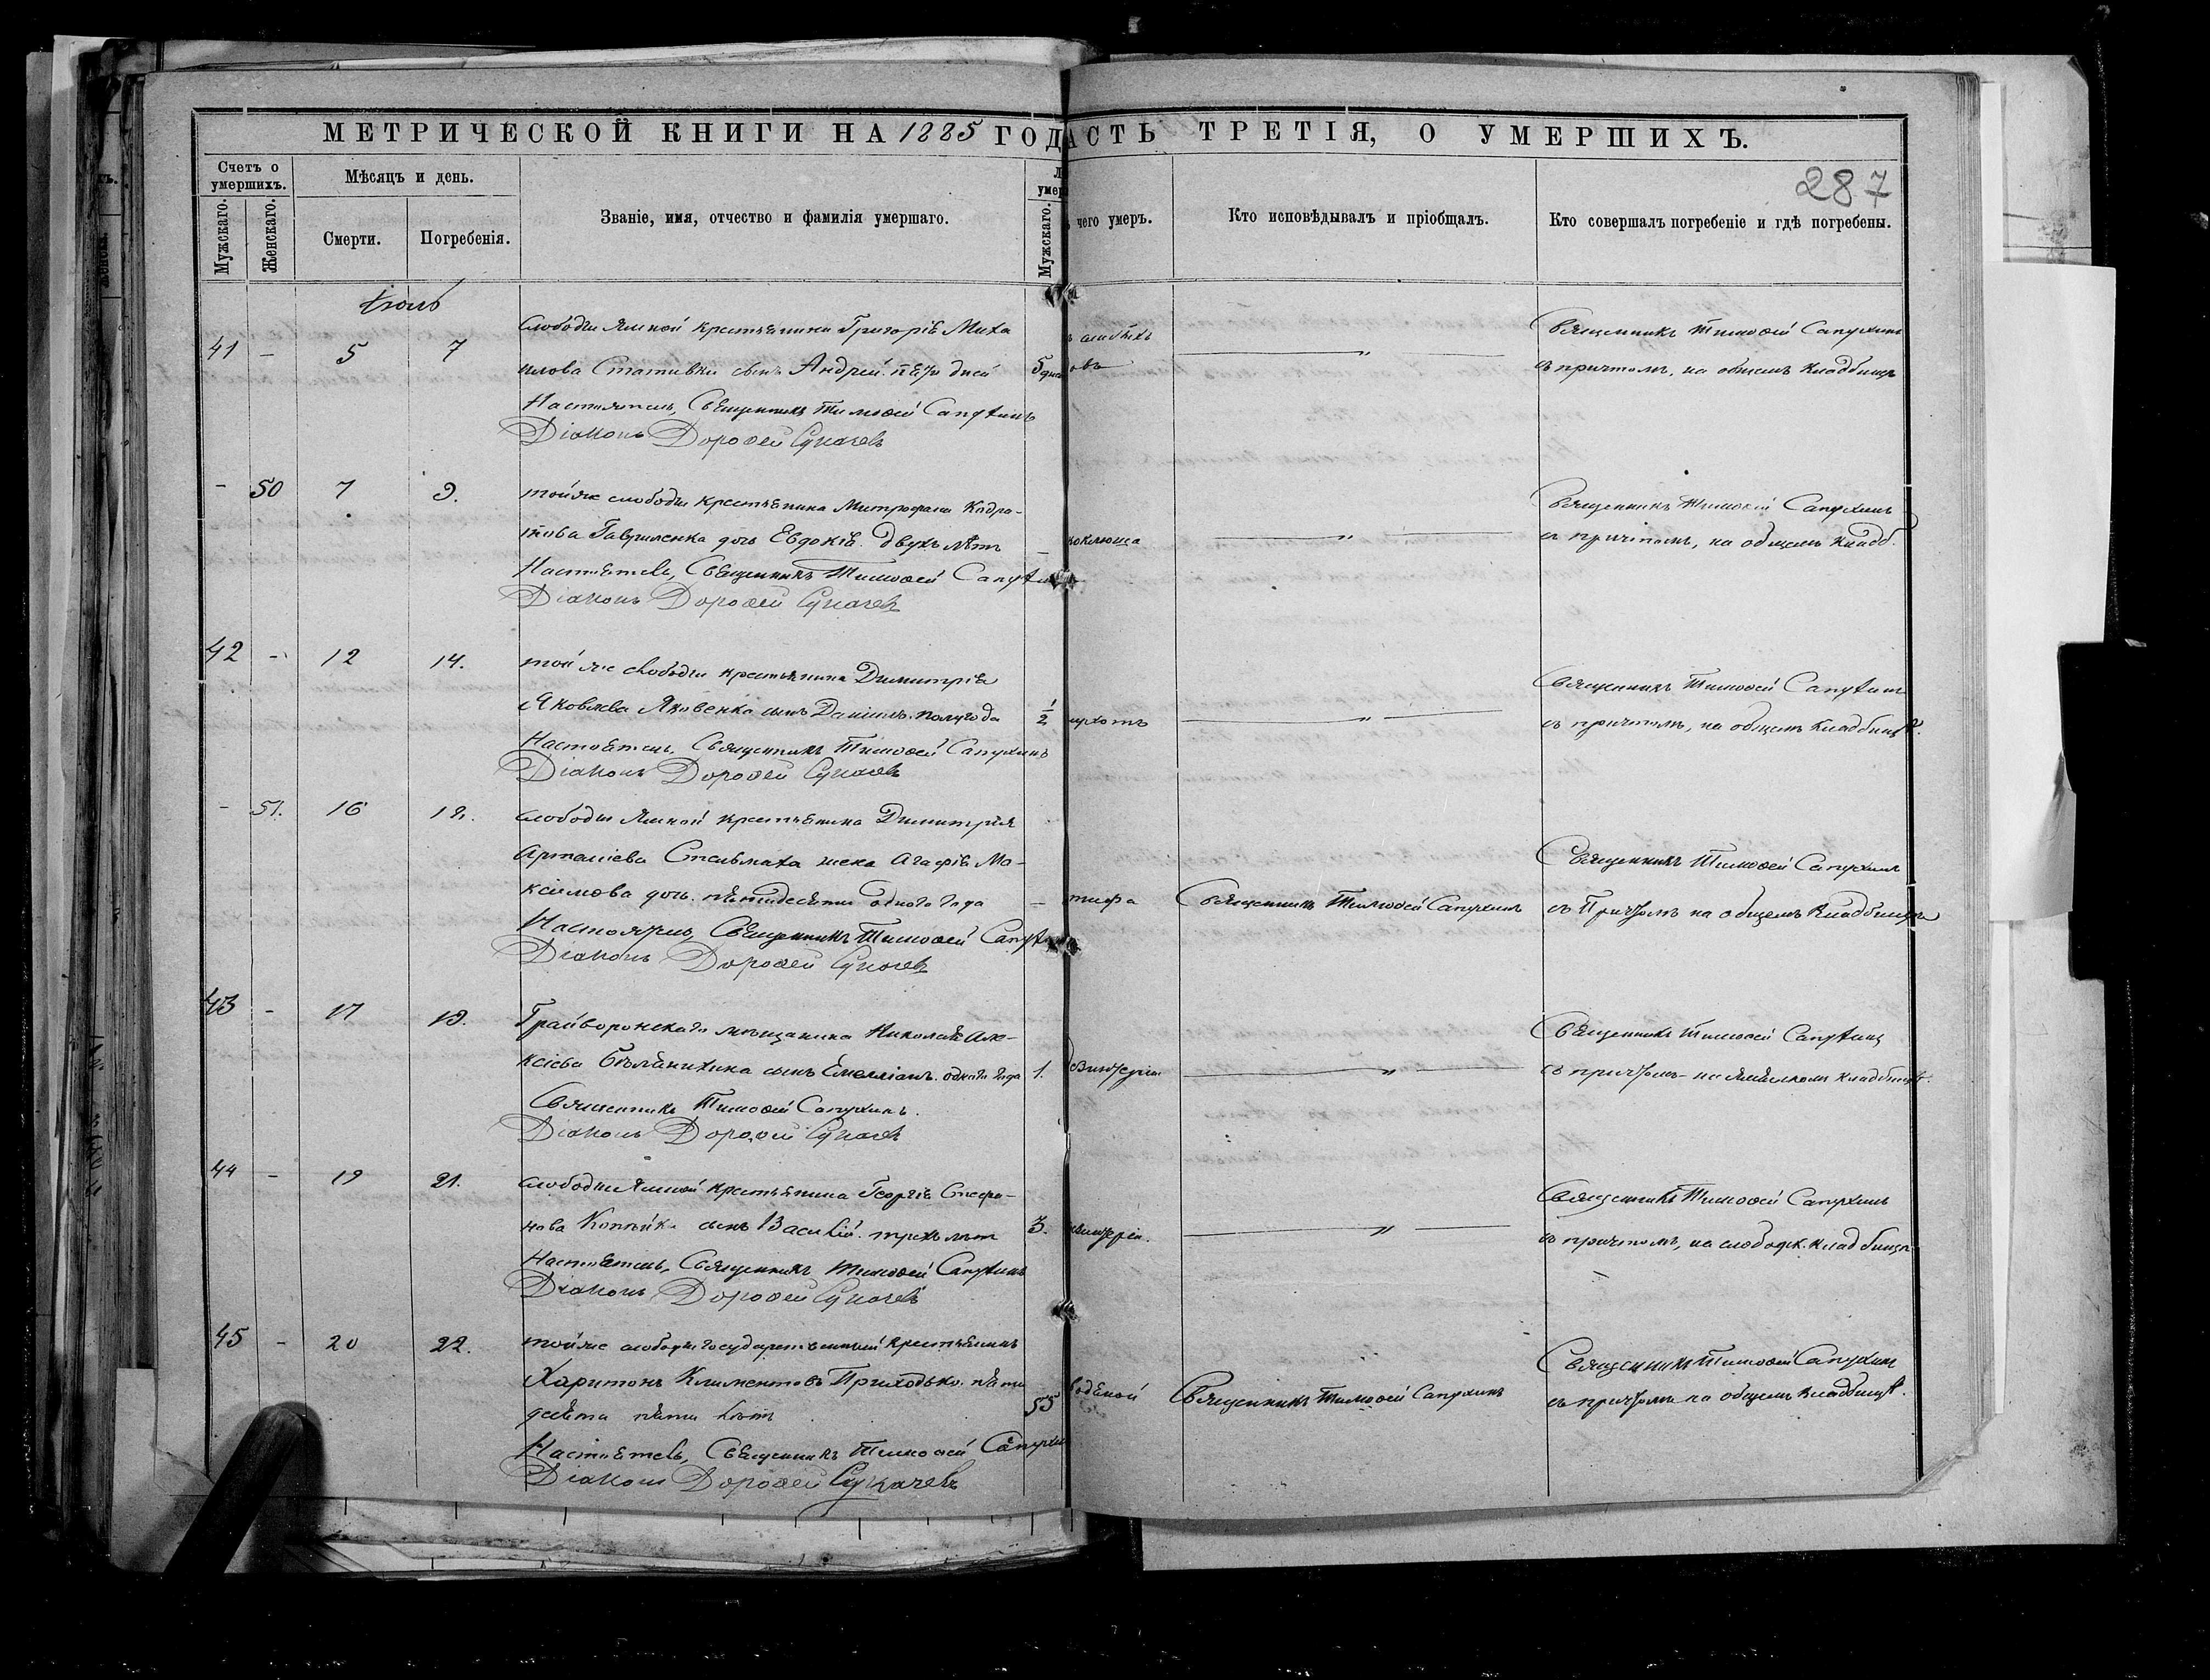 МЕТРИЧЕСКОЙ КНИГИ НА 1885 ГОД АСТЬ ТРЕТІЯ, О УМЕРШИХЪ.
287
Счетъ о умершихъ.
Мужскаго.
Женскаго.
Мѣсяцъ и день.
Смерти.
Погребенія.
Званіе, имя, отчество и фамилія умершаго.
Мужскаго.
чего умеръ.
Кто исповѣдывалъ и пріобщалъ.
Кто совершалъ погребеніе и гдѣ погребены.
Іюль
слободы Ямной крестьянина Григорія Миха
Священникъ Тимоѳей Сапухинъ
41 - 5 7 илова Стативки сынъ Андрей. пяти дней 5 дней
съ причтомъ, на общемъ кладбищѣ
Настоятель, Священникъ Тимоѳей Сапухинъ
Діаконъ Дороѳей Сукачевъ
- 50 7 9. тойже слободы крестьянина Митрофана Кодра-
Священникъ Тимоѳей Сапухинъ
това Гавриленка дочь Евдокія. двухъ лѣтъ - коклюша
съ причтомъ, на общемъ кладб.
Настоятель, Священникъ Тимоѳей Сапухинъ
Діаконъ Дороѳей Сукачевъ
42 - 12 14. тойже слободы крестьянина Димитрія
Священникъ Тимоѳей Сапухинъ
Яковлева Яковенка сынъ Даніилъ. полугода 1/2
съ причтомъ, на общемъ кладбищѣ.
Настоятель, Священникъ Тимоѳей Сапухинъ
Діаконъ Дороѳей Сукачевъ
- 51. 16 18. слободы Ямной крестьянина Димитрія
Священникъ Тимоѳей Сапухинъ
Стельмаха жена Агафія Ма-
ксимова дочь. пятидесяти одного года - тифа Священникъ Тимоѳей Сапухинъ съ Причтомъ на общемъ Кладбищѣ
Настоятель, Священникъ Тимоѳей Сапухинъ
Діаконъ Дороѳей Сукачевъ
43 - 17 19. Грайворонскаго мѣщанина Николая Але-
Священникъ Тимоѳей Сапухинъ
ксіева сынъ Емеліанъ. одного года 1. дизинтеріи
съ причтомъ - на Ямскомъ кладбищѣ.
Священникъ Тимоѳей Сапухинъ.
Діаконъ Дороѳей Сукачевъ
44 - 19 21. слободы Ямной крестьянина Георгія Стефа-
Священникъ Тимоѳей Сапухинъ
нова Копѣйка сынъ Василій. трехъ лѣтъ 3. изинтеріи.
съ причтомъ, на слободск. кладбищѣ
Настоятель, Священникъ Тимоѳей Сапухинъ
Діаконъ Дороѳей Сукачевъ
45 - 20 22. тойже слободы государственный крестьянинъ
Священникъ Тимоѳей Сапухинъ
Харитонъ Климентовъ Приходько. пяти
десяти пяти лѣтъ 55 водяной Священникъ Тимоѳей Сапухинъ съ причтомъ на общемъ кладбищѣ.
Настоятель, Священникъ Тимоѳей Сапухинъ
Діаконъ Дороѳей Сукачевъ